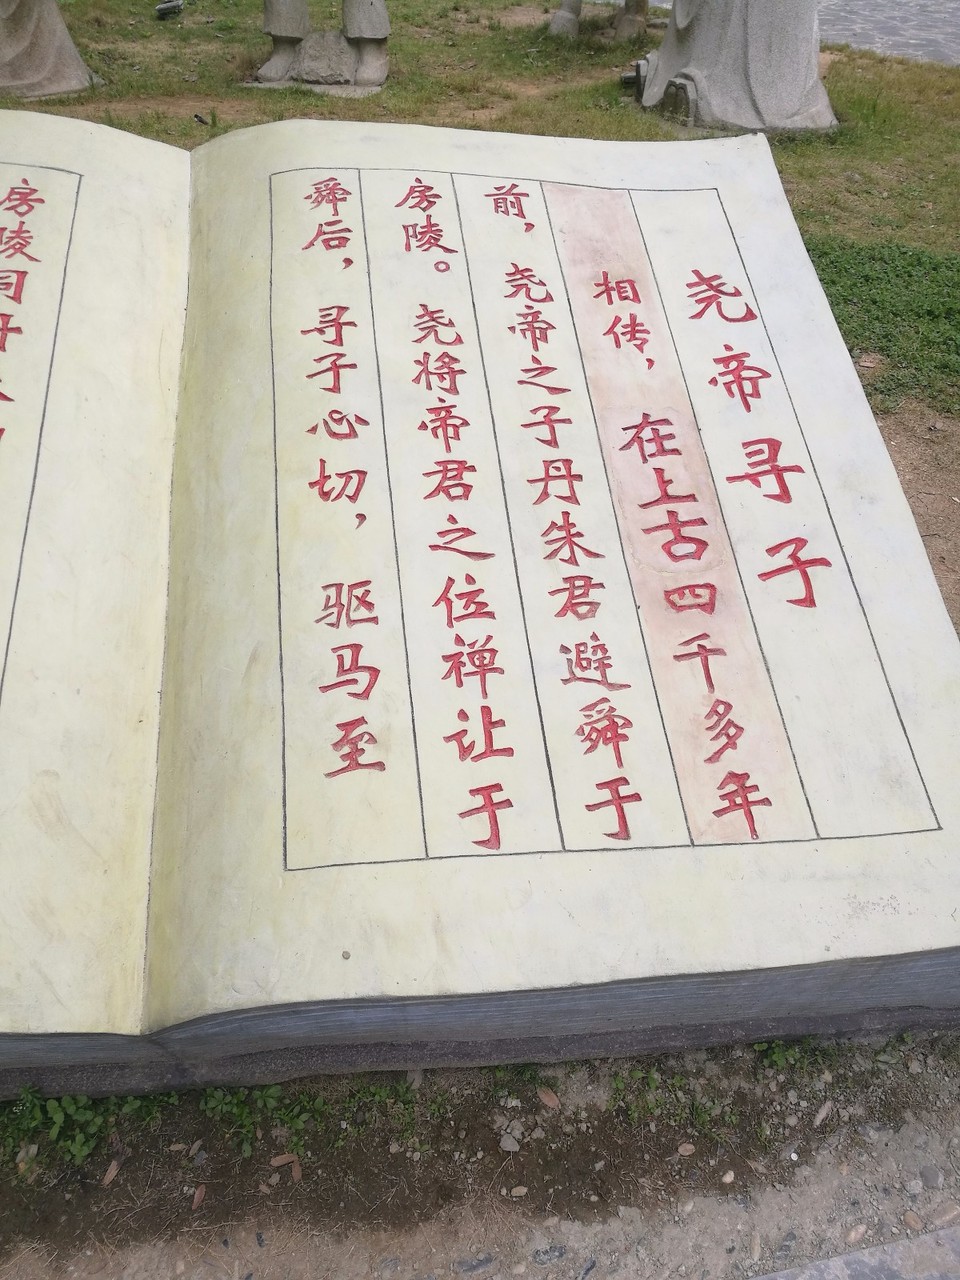 尧帝寻子
相传，在上古四千多年
前，尧帝之子丹朱君避舜于
房陵。尧将帝君之位禅让于
舜后，寻子心切，驱马至
房陵